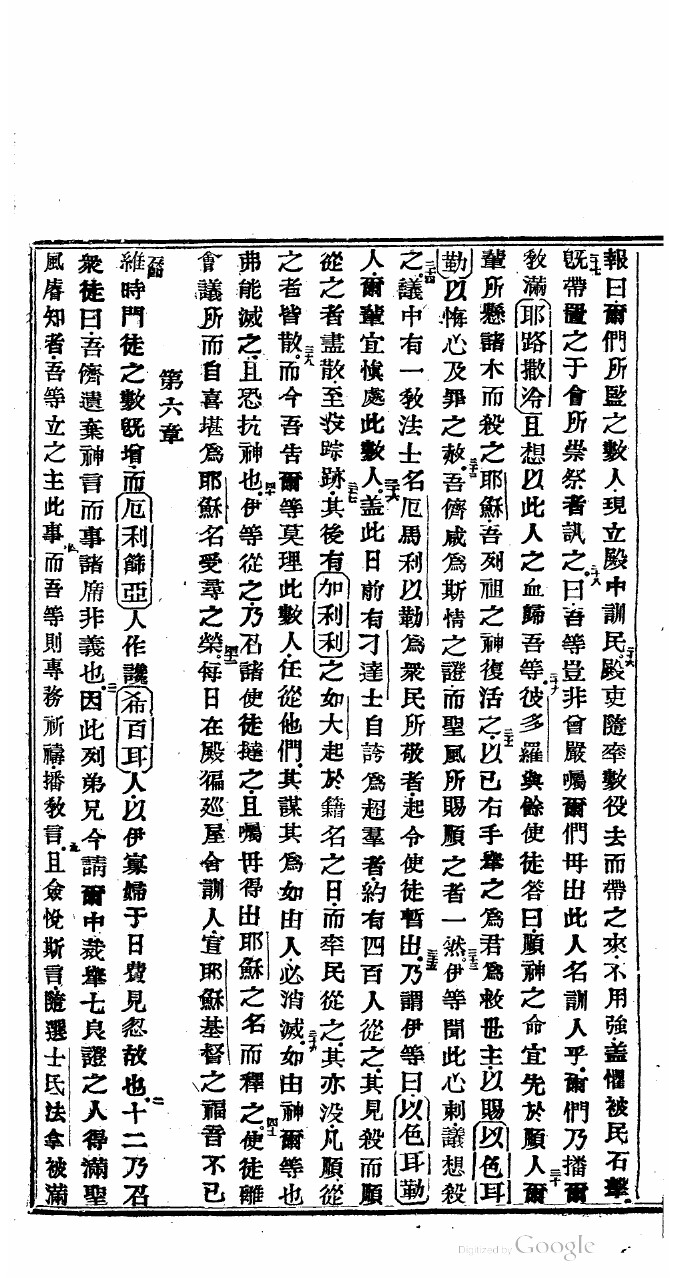 報曰爾們所監之數人現立殿中訓民二十六殿吏隨率數役去而帶之來不用強盖懼被民石擊
二十七既帶置之于會所崇祭者訊之二十八曰吾等豈非曾嚴囑爾們毋出此人名訓人乎爾們乃播爾
教滿耶路撒冷且想以此人之血歸吾等二十九彼多羅與餘使徒答曰順神之命宜先於順人爾三十
輩所懸諸木而殺之耶穌吾列祖之神復活之三十一以己右手舉之爲君爲救世主以賜以色耳
勒以悔心及罪之赦三十二吾儕咸爲斯情之證而聖風所賜順之者一然三十三伊等聞此心刺議想殺
之三十四議中有一教法士名厄馬利以勒爲衆民所敬者起令使徒暫出三十五乃謂伊等曰以色耳勒
人爾輩宜愼處此數人三十六盖此日前有刁達士自誇爲超羣者約有四百人從之其見殺而順
從之者盡散至没踪跡三十七其後有加利利之如大起於籍名之日而率民從之其亦没凡順從
之者皆散三十八而今吾告爾等莫理此數人任從他們其謀其爲如由人必消滅三十九如由神爾等也
弗能滅之且恐抗神也四十伊等從之乃召諸使徒撻之且囑毋得出耶穌之名而釋之四十一使徒離
會議所而自喜堪爲耶穌名受辱之榮四十二每日在殿徧廵屋舍訓人宣耶穌基督之福音不已
第六章
一節維時門徒之數既增而厄利篩亞人作譏希百耳人以伊寡婦于日費見忽故也二十二乃召
衆徒曰吾儕遺棄神言而事諸席非義也三因此列弟兄今請爾中裁擧七良證之人得滿聖
風睿知者吾等立之主此事四而吾等則專務祈禱播教言五且僉悅斯言隨選士氐法拿被滿
Digitized by Google